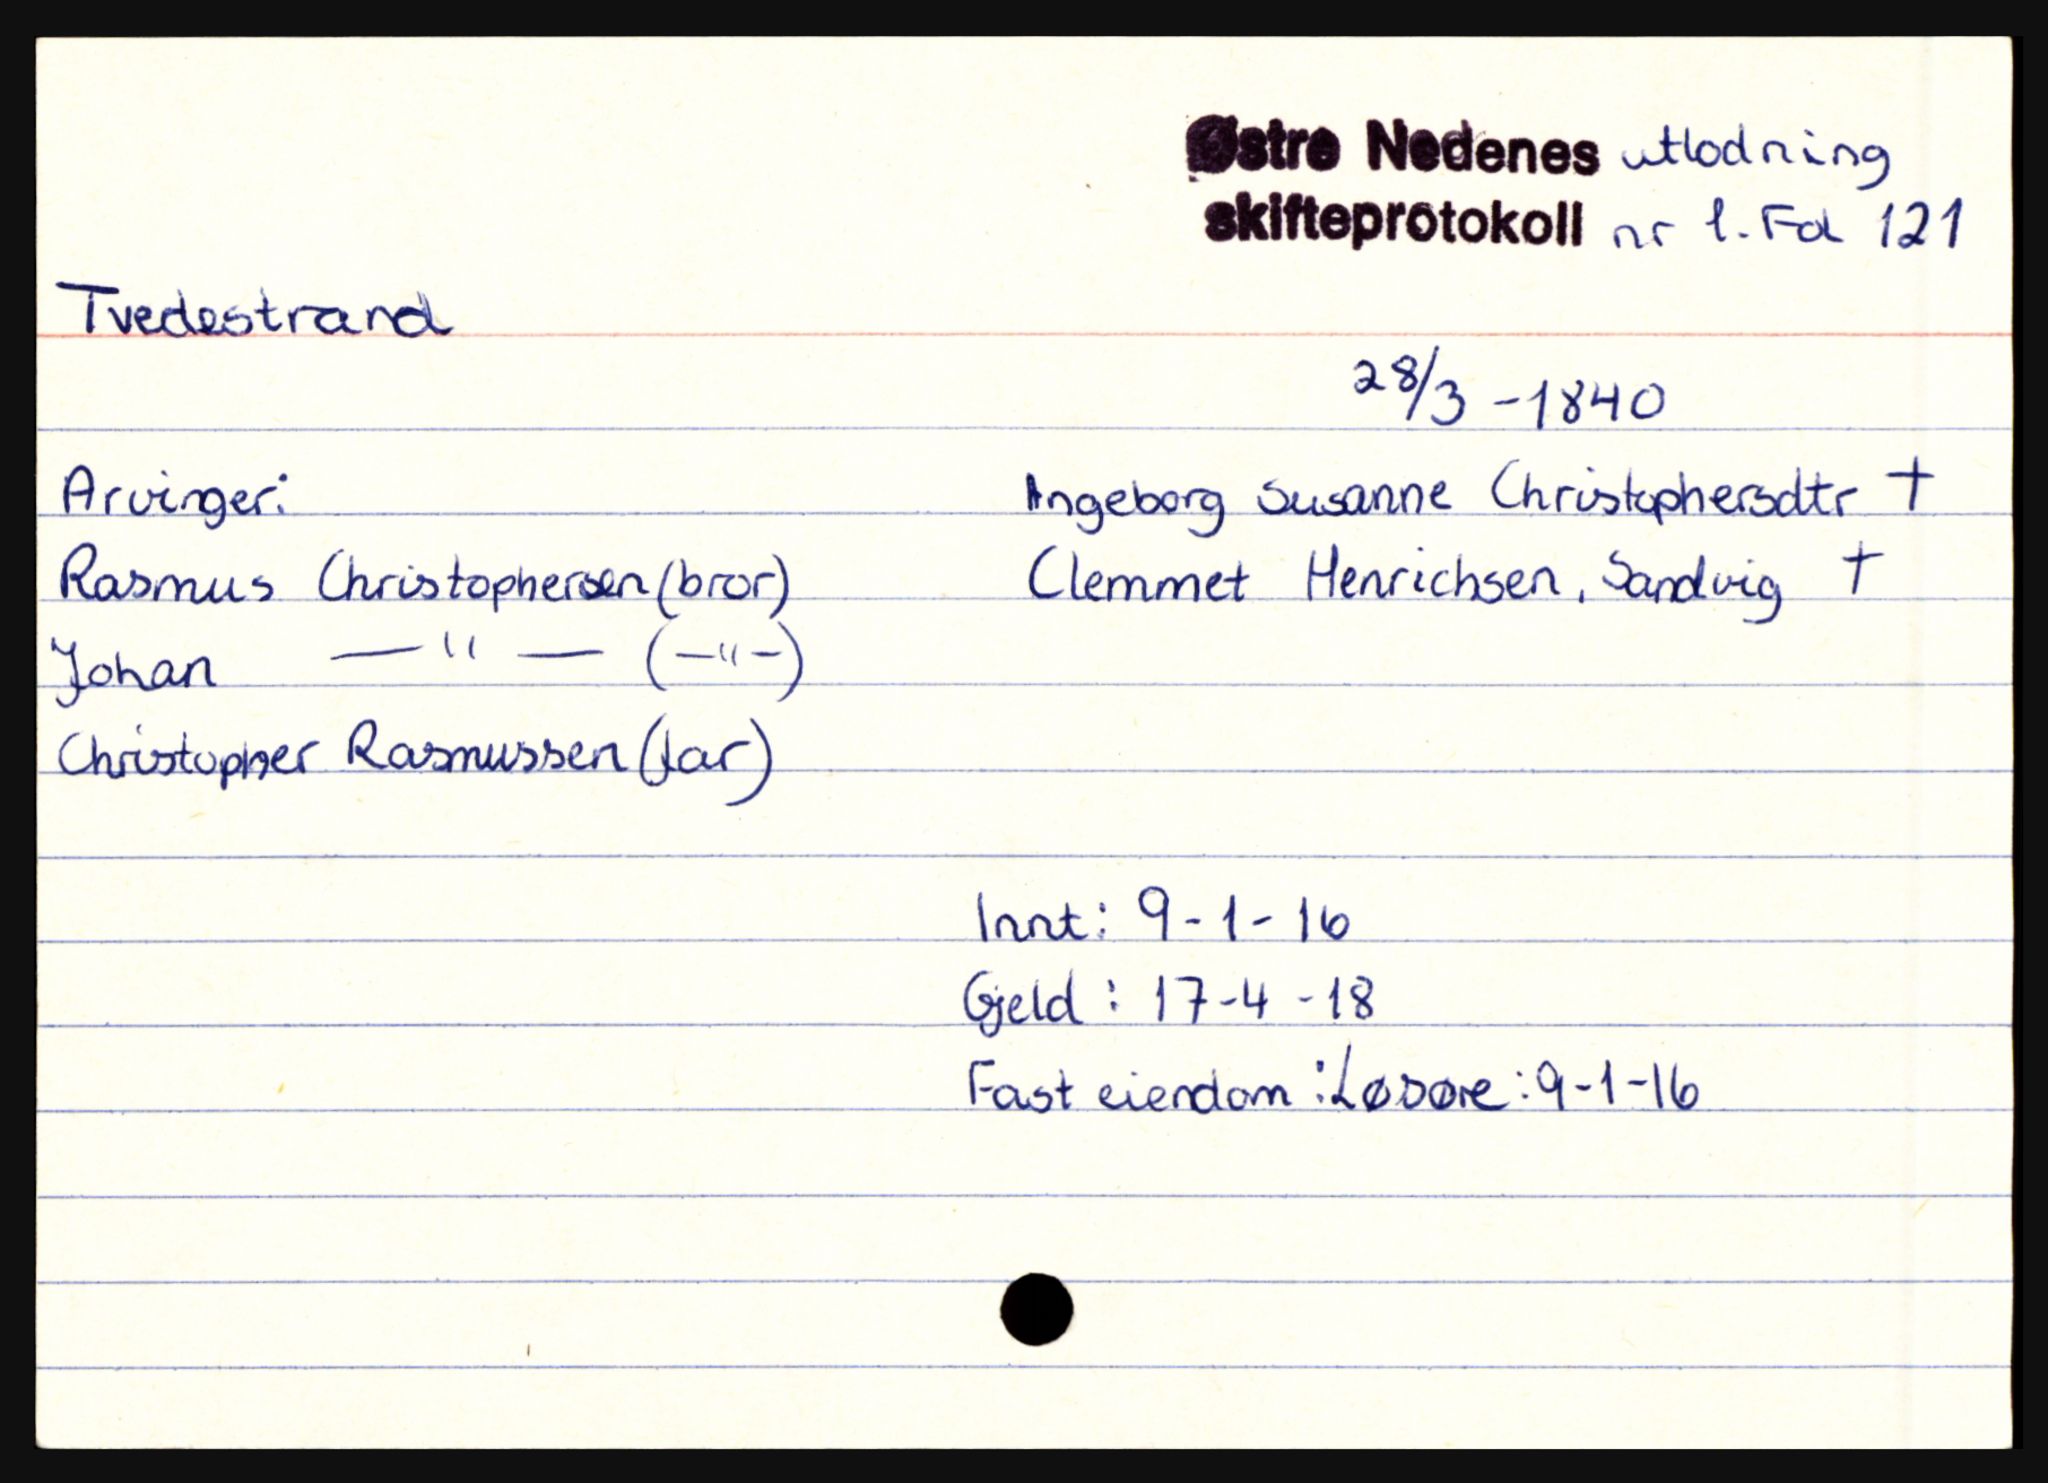 Østre Nedenes utlodning
skifteprotokoll nr 1. Fol 121
Tvedestrand
28/3 - 1840
Arvinger:
Ingeborg Susanne Christophersdtr †
Rasmus Christophersen (bror)
Clemmet Henrichsen, Sandvig †
Johan — " — (—"—)
Christopher Rasmussen (far)
Innt: 9-1-16
Gjeld: 17-4-18
Fast eiendom: Løsøre: 9-1-16